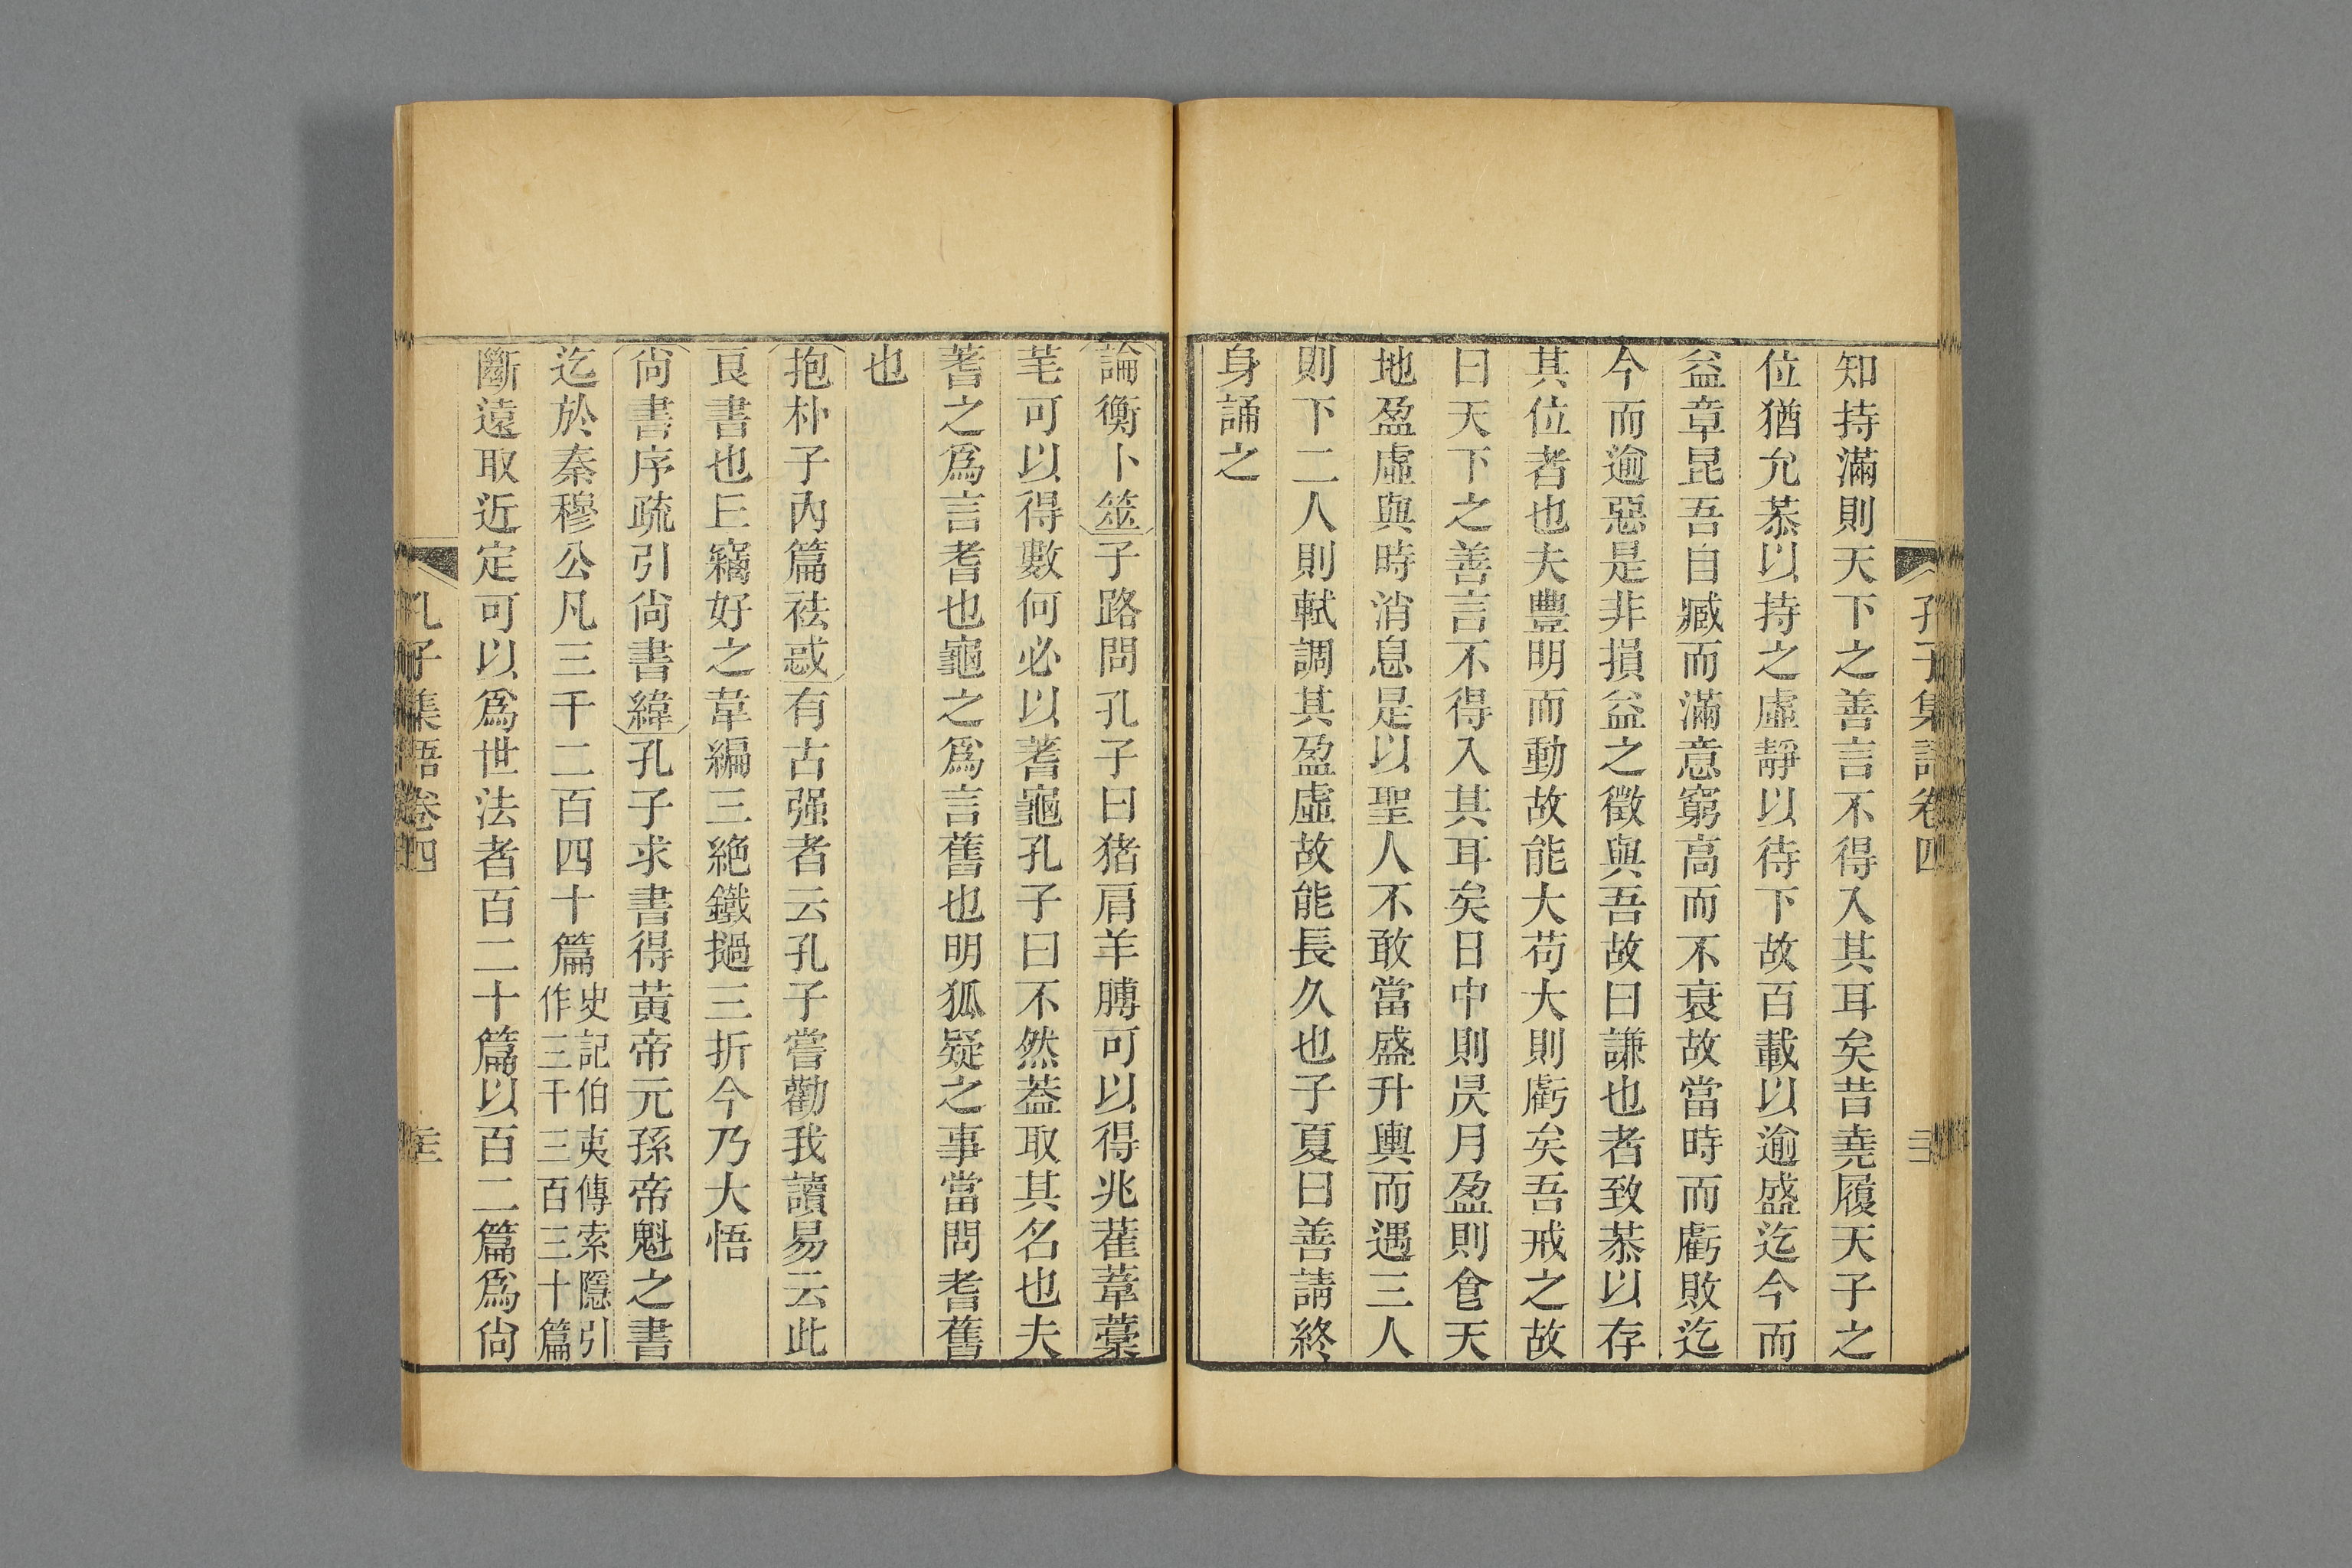 孔子集語卷四
知持滿則天下之善言不得入其耳矣昔堯履天子之
位猶允恭以持之虛靜以待下故百載以逾盛迄今而
益章昆吾自臧而滿意窮高而不衰故當時而虧敗迄
今而逾惡是非損益之徵與吾故曰謙也者致恭以存
其位者也夫豐明而動故能大苟大則虧矣吾戒之故
曰天下之善言不得入其耳矣日中則昃月盈則食天
地盈虛與時消息是以聖人不敢當盛升輿而遇三人
則下二人則軾調其盈虛故能長久也子夏曰善請終
身誦之
論衡卜筮子路問孔子曰猪肩羊膊可以得兆雚葦藁
芼可以得數何必以蓍龜孔子曰不然蓋取其名也夫
蓍之爲言耆也龜之爲言舊也明狐疑之事當問耆舊
也
抱朴子內篇祛惑有古强者云孔子嘗勸我讀易云此
良書也丘竊好之韋編三絕鐵撾三折今乃大悟
尙書序疏引尙書緯孔子求書得黃帝元孫帝魁之書
迄於秦穆公凡三千二百四十篇史記伯夷傳索隱引作三千三百三十篇
斷遠取近定可以爲世法者百二十篇以百二篇爲尙
孔子集語卷四